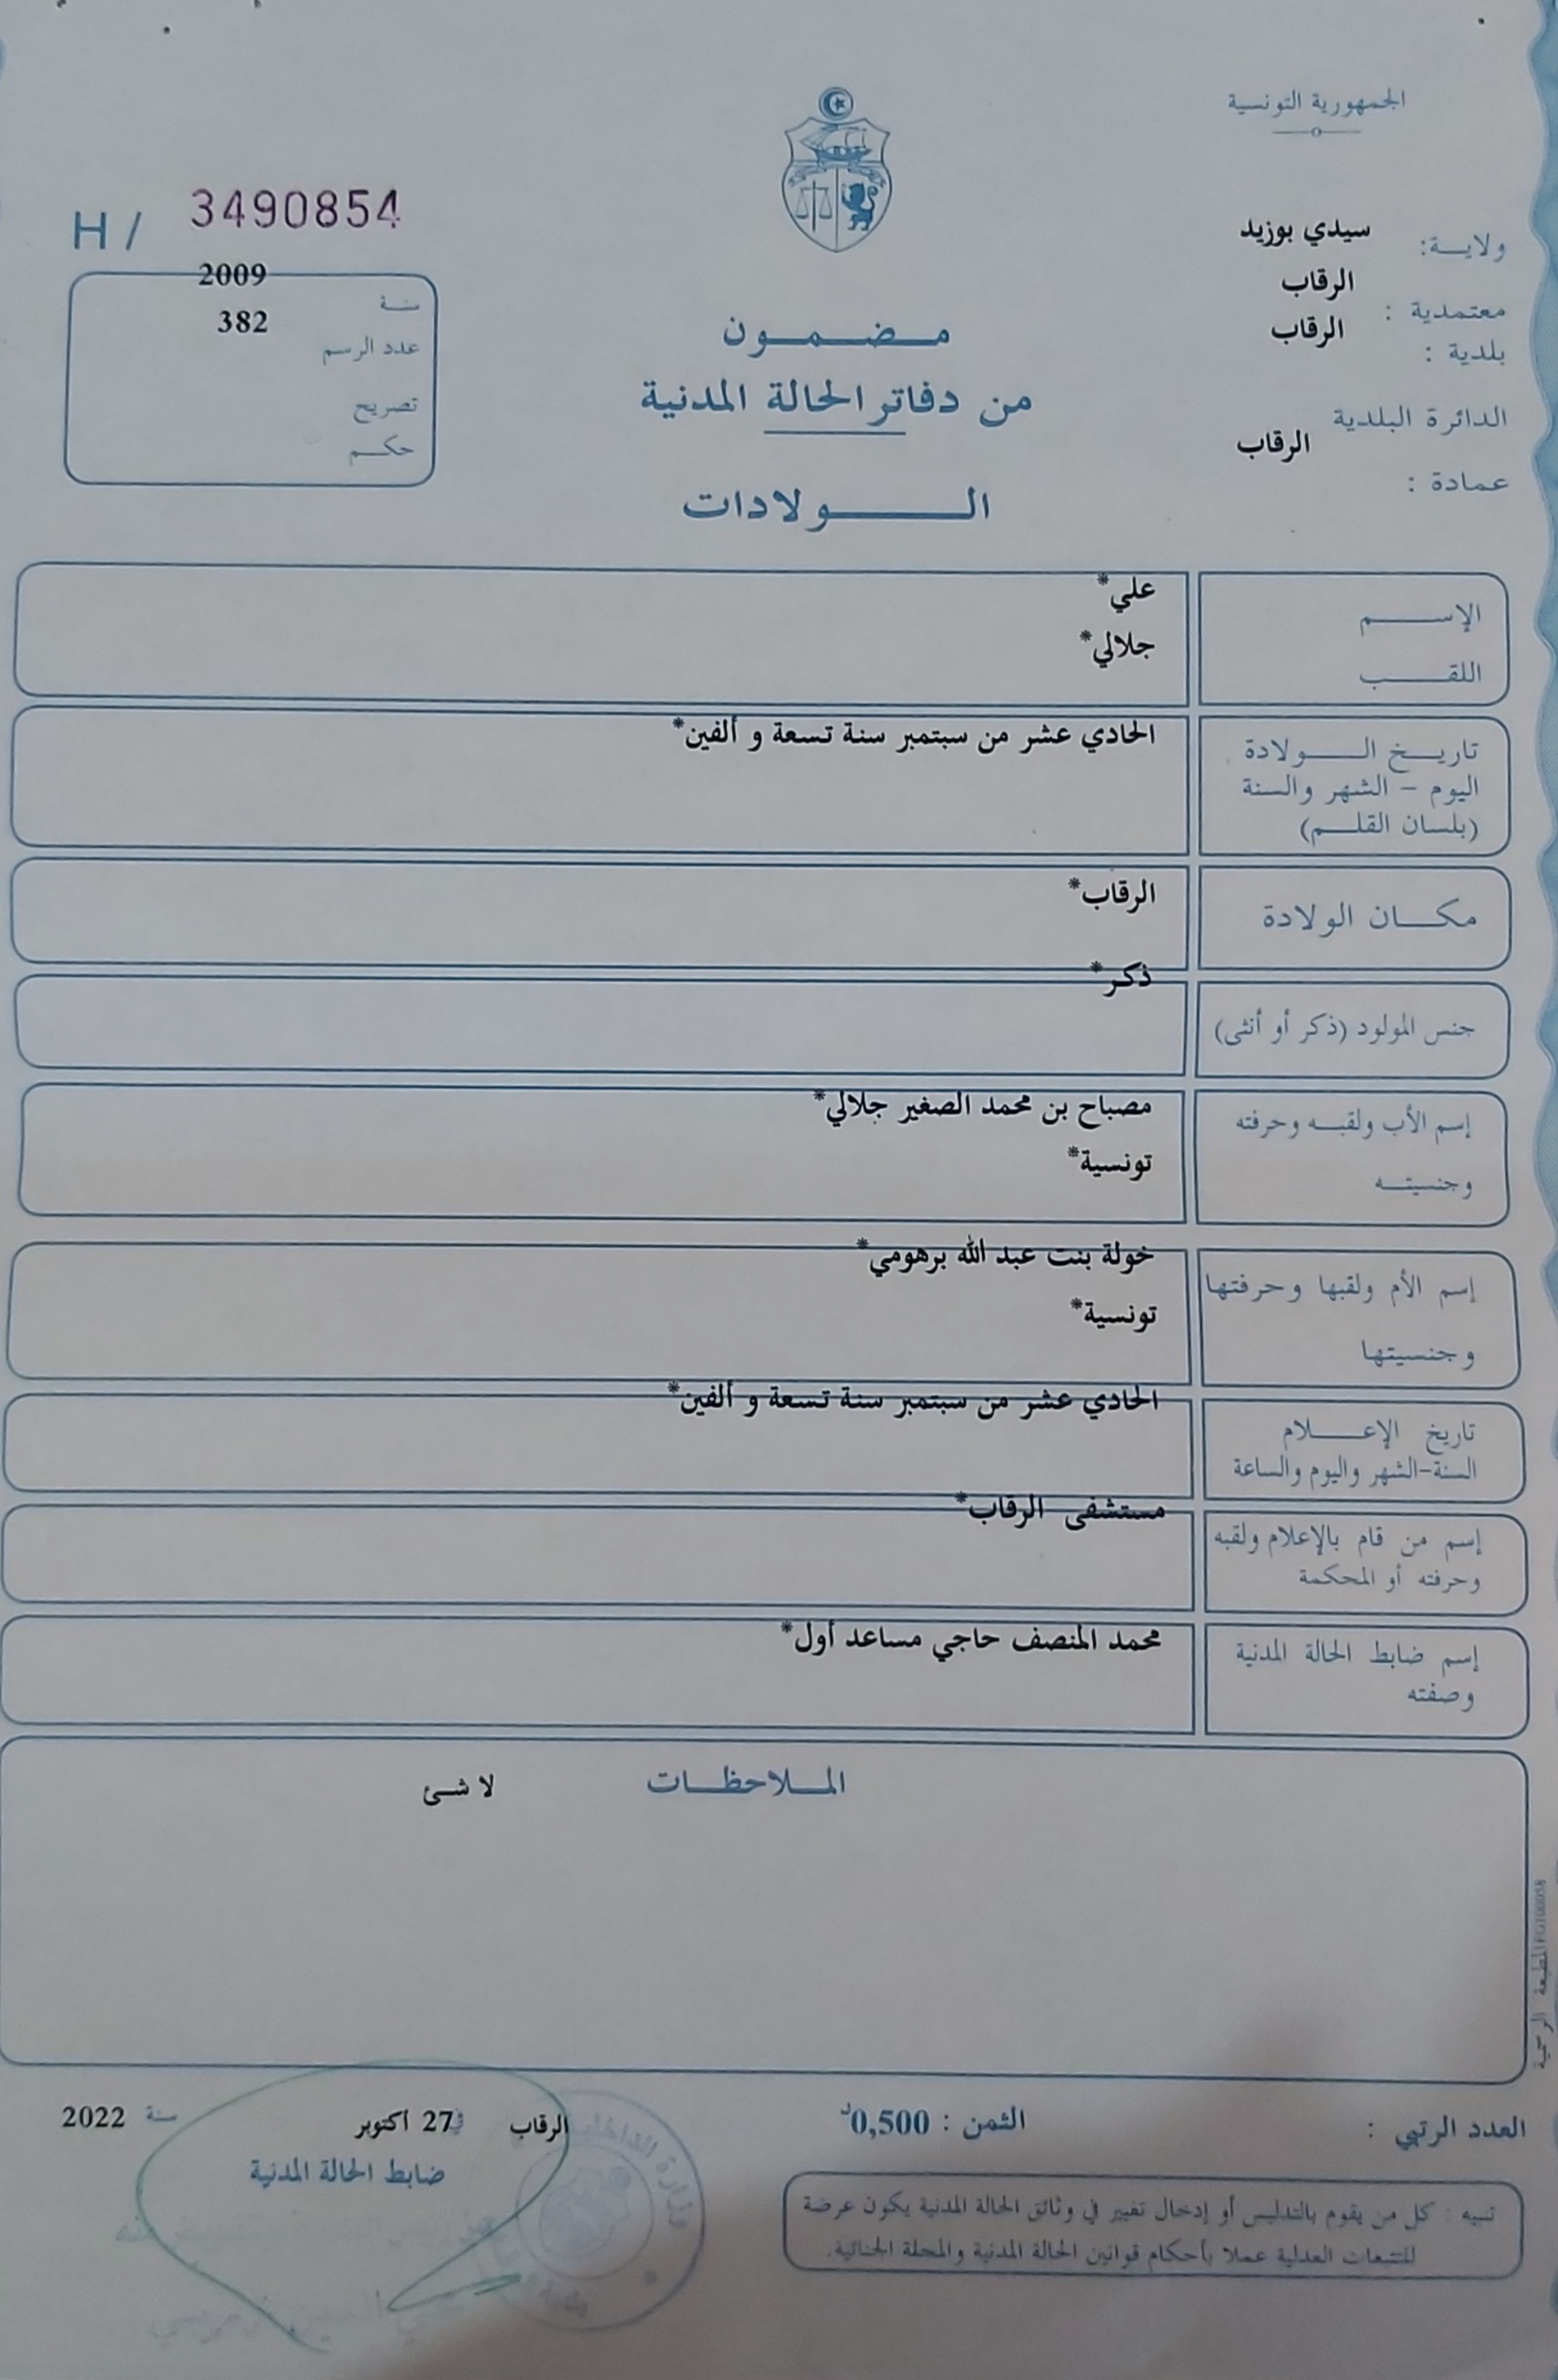 الجمهورية التونسية
ولايـة: سيدي بوزيد
معتمدية : الرقاب
بلدية : الرقاب
الدائرة البلدية
عمادة : الرقاب
H / 3490854
سنة 2009
عدد الرسم 382
تصريح
حكم
مضمون
من دفاتر الحالة المدنية
الولادات
الإسم علي*
اللقب جلالي*
تاريخ الولادة الحادي عشر من سبتمبر سنة تسعة و ألفين*
اليوم - الشهر والسنة
(بلسان القلم)
مكان الولادة الرقاب*
جنس المولود (ذكر أو أنثى) ذكر*
إسم الأب ولقبه وحرفته مصباح بن محمد الصغير جلالي*
وجنسيته تونسية*
إسم الأم ولقبها وحرفتها خولة بنت عبد الله برهومي*
وجنسيتها تونسية*
تاريخ الإعلام الحادي عشر من سبتمبر سنة تسعة و ألفين*
السنة-الشهر واليوم والساعة
إسم من قام بالإعلام ولقبه مستشفى الرقاب*
وحرفته أو المحكمة
إسم ضابط الحالة المدنية محمد المنصف حاجي مساعد أول*
وصفته
الملاحظات لا شئ
العدد الرتبي :
الثمن : 0,500د
الرقاب في 27 أكتوبر سنة 2022
ضابط الحالة المدنية
تنبيه : كل من يقوم بالتدليس أو إدخال تغيير في وثائق الحالة المدنية يكون عرضة
للتتبعات العدلية عملا بأحكام قوانين الحالة المدنية والمجلة الجنائية.
وزارة الداخلية
المطبعة الرسمية